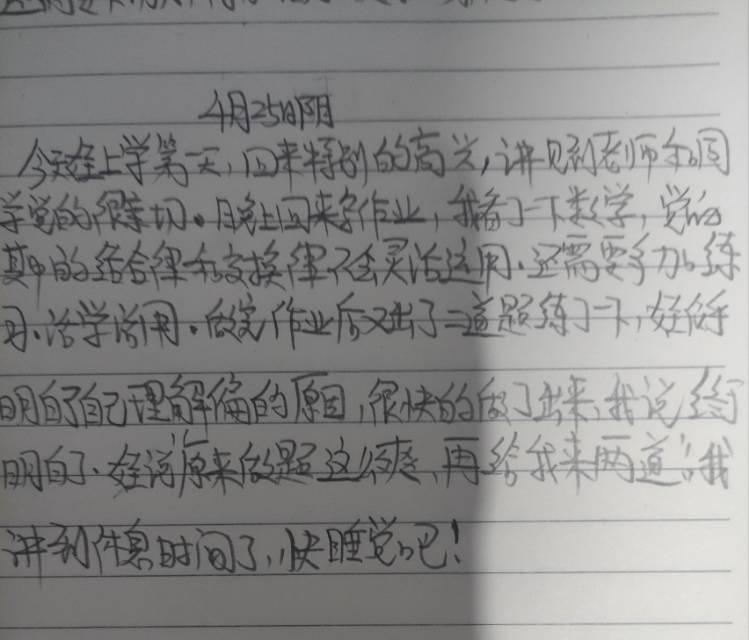 4月25日阴
今天在上学第一天,回来特别的高兴,讲见到老师和同
学觉的很亲切。晚上回来写作业,我看了一下数学,觉的
其中的结合律和交换律不会灵活运用.还需要多加练
习.活学活用.做完作业后又出了二道题练了一下,好似乎
明白了自己理解偏的原因,很快的做了出来,我说终于
明白了.她说原来做题这么爽,再给我来两道!我
讲到休息时间了,快睡觉吧!